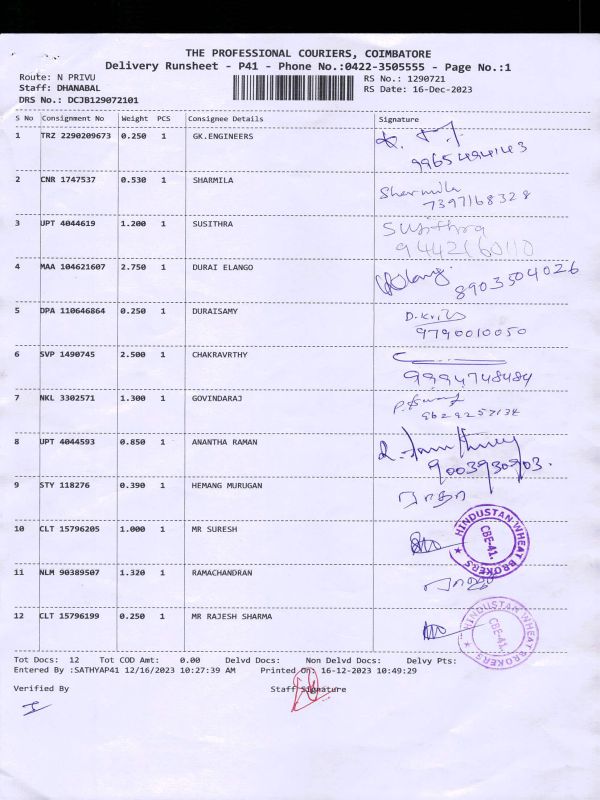 THE PROFESSIONAL COURIERS, COIMBATORE
Delivery Runsheet - P41 - Phone No.:0422-3505555 - Page No.:1
Route: N PRIVU RS No.: 1290721
Staff: DHANABAL RS Date: 16-Dec-2023
DRS No.: DCJB129072101
S No Consignment No Weight PCS Consignee Details Signature
1 TRZ 2290209673 0.250 1 GK.ENGINEERS
2 CNR 1747537 0.530 1 SHARMILA Sharmila
7397168328
3 UPT 4044619 1.200 1 SUSITHRA Susithra
9442160110
4 MAA 104621607 2.750 1 DURAI ELANGO
8903504026
5 DPA 110646864 0.250 1 DURAISAMY
9790010050
6 SVP 1490745 2.500 1 CHAKRAVRTHY
9994748484
7 NKL 3302571 1.300 1 GOVINDARAJ
8 UPT 4044593 0.850 1 ANANTHA RAMAN
9003930903.
9 STY 118276 0.390 1 HEMANG MURUGAN
ராதா
10 CLT 15796205 1.000 1 MR SURESH
HINDUSTAN WHEAT BROKERS
CBE-41.
11 NLM 90389507 1.320 1 RAMACHANDRAN
12 CLT 15796199 0.250 1 MR RAJESH SHARMA
HINDUSTAN WHEAT BROKERS
CBE-41.
Tot Docs: 12 Tot COD Amt: 0.00 Delvd Docs: Non Delvd Docs: Delvy Pts:
Entered By :SATHYAP41 12/16/2023 10:27:39 AM Printed On: 16-12-2023 10:49:29
Verified By Staff Signature